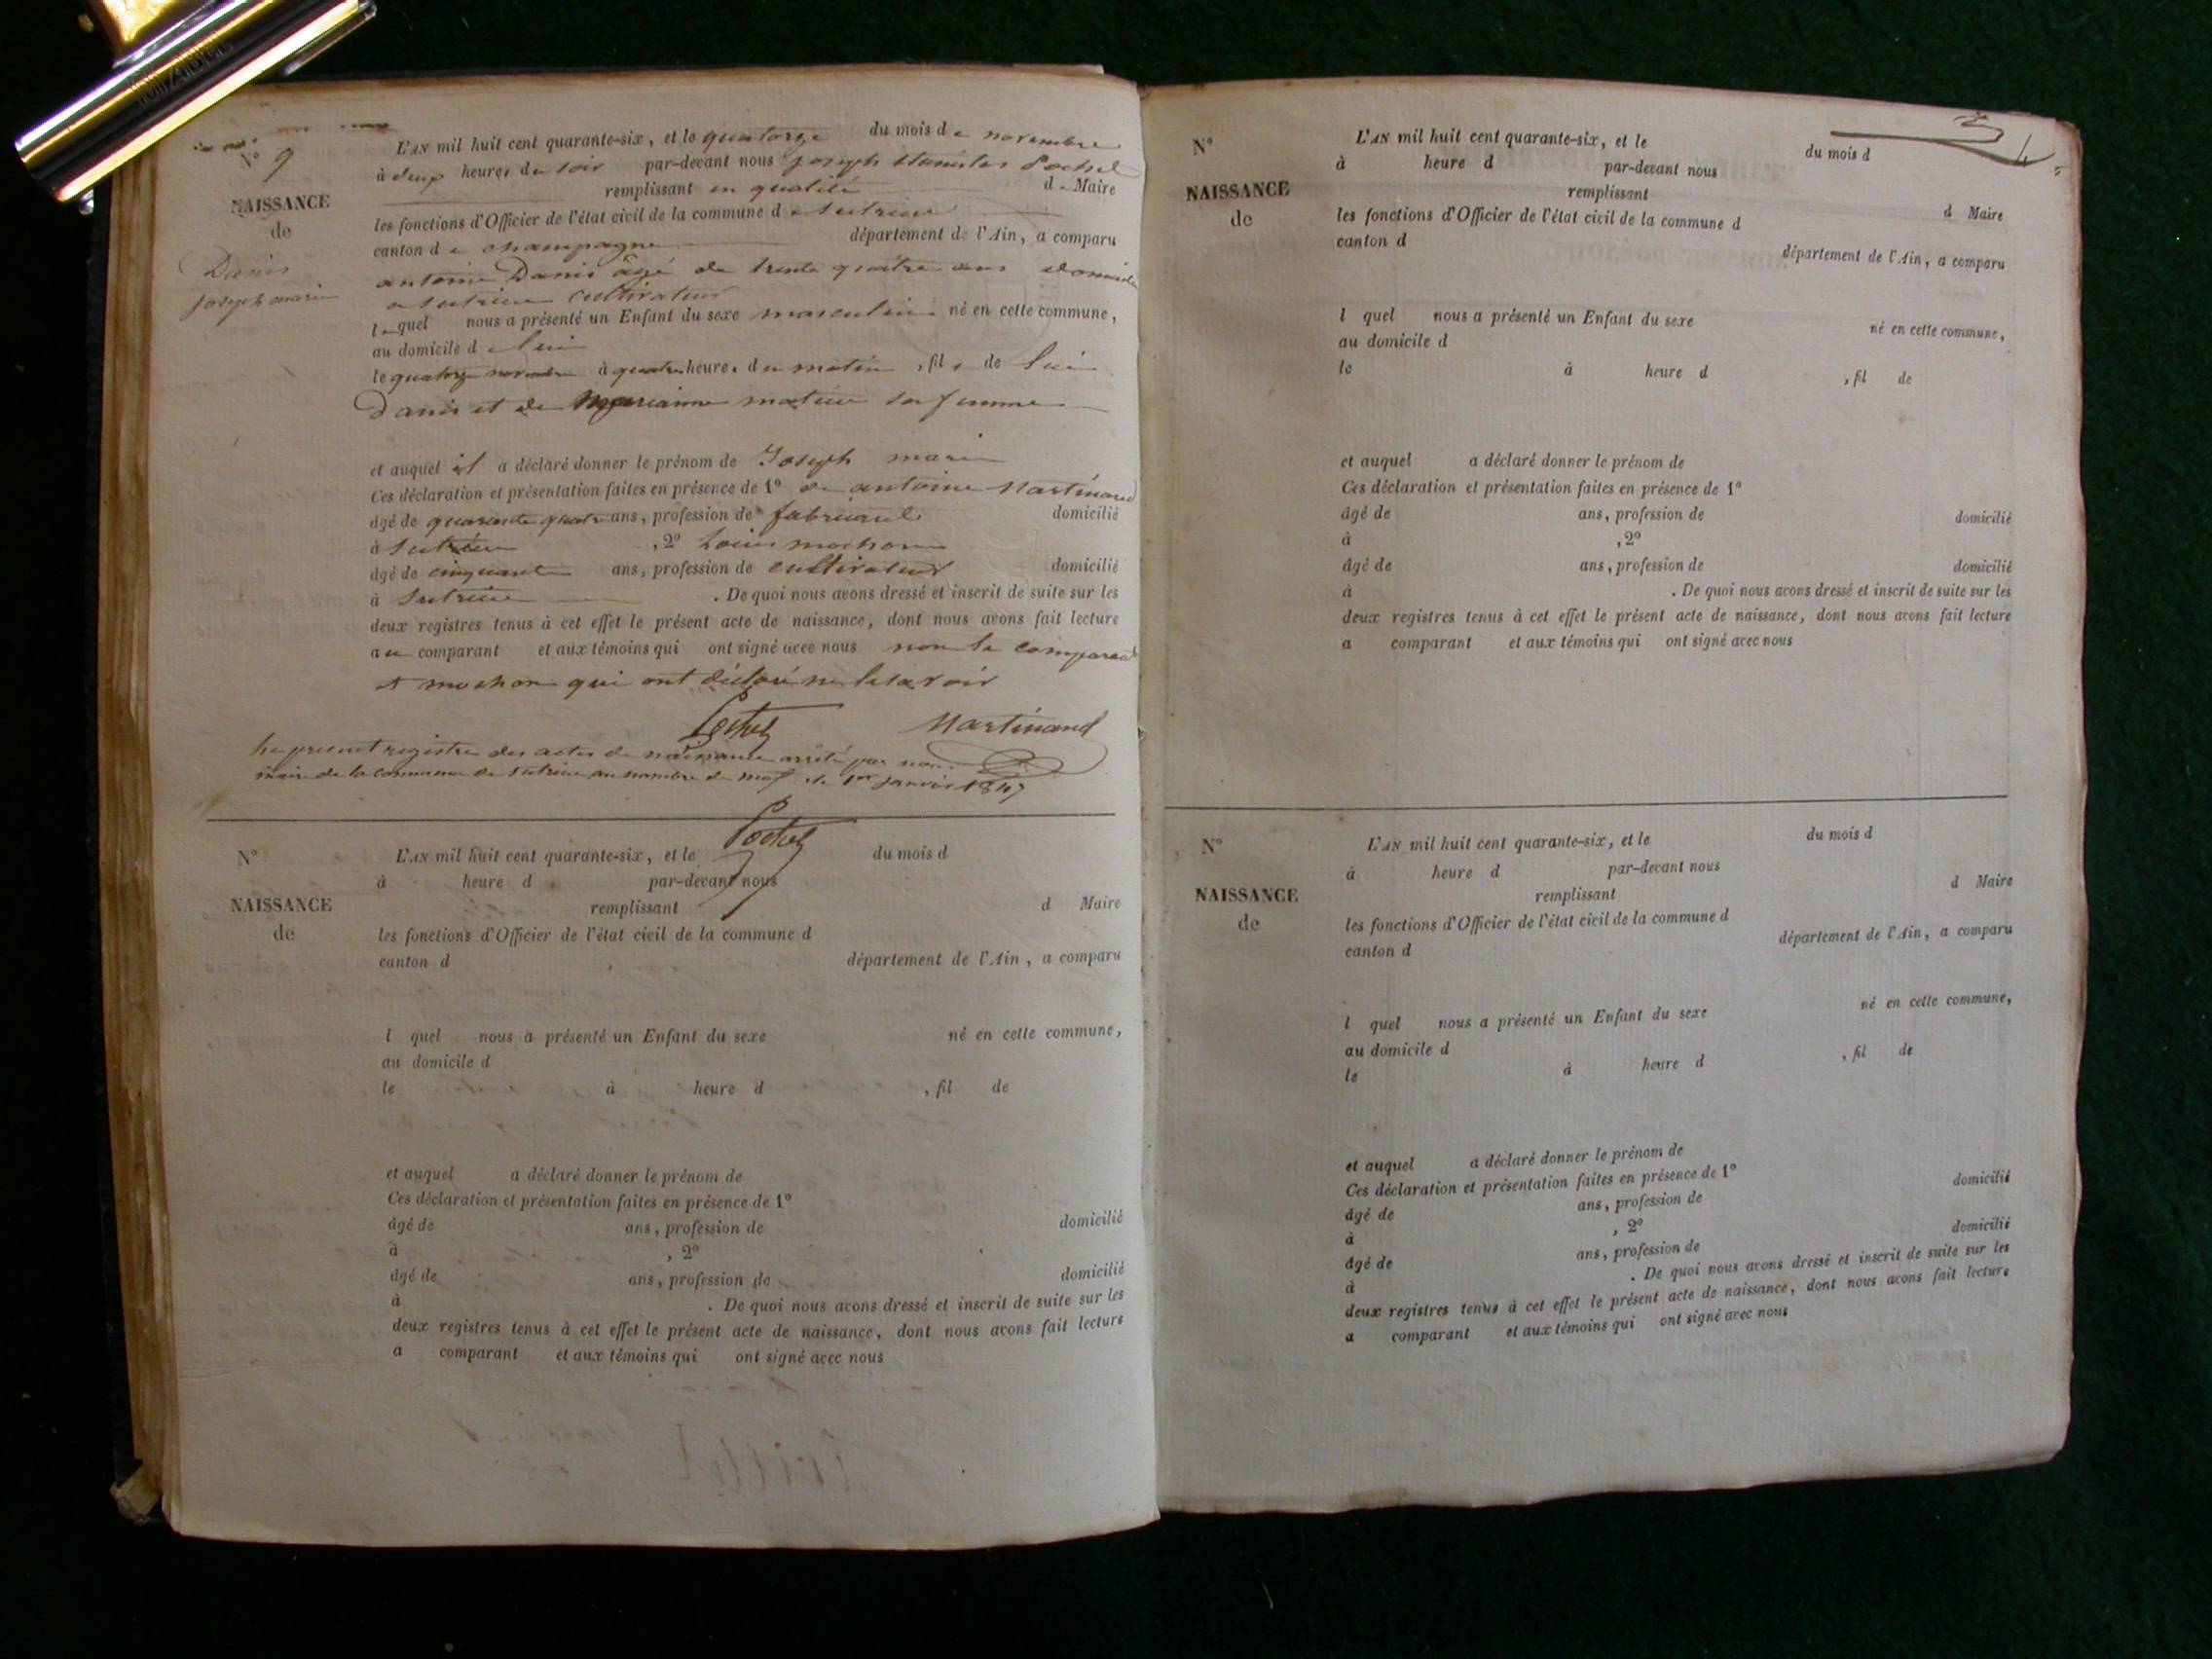 N° 9
NAISSANCE
de
Danis
joseph marie
L'AN mil huit cent quarante-six, et le quatorze du mois de novembre
à deux heures du soir par-devant nous joseph stanislas Pochet
remplissant en qualité de Maire
les fonctions d'Officier de l'état civil de la commune de Sutrieu
canton de champagne département de l'Ain, a comparu
antoine Danis âgé de trente quatre ans domicilié
a Sutrieu cultivateur
lequel nous a présenté un Enfant du sexe masculin né en cette commune,
au domicile de lui
le quatorze novembre à quatre heure. du matin, fils de lui
Danis et de marianne sa femme
et auquel il a déclaré donner le prénom de Joseph marie
Ces déclaration et présentation faites en présence de 1° de antoine Martinand
âgé de quarante quatre ans, profession de fabricant domicilié
à Sutrieu, 2° Louis mochon
âgé de cinquante ans, profession de cultivateur domicilié
à Sutrieu. De quoi nous avons dressé et inscrit de suite sur les
deux registres tenus à cet effet le présent acte de naissance, dont nous avons fait lecture
au comparant et aux témoins qui ont signé avec nous non le comparant
et mochon qui ont déclaré ne le savoir
Pochet Martinand
le present registre des actes de naissance arrêté par nous
maire de la commune de Sutrieu au nombre de neuf le 1er janvier 1847
Pochet
N°
NAISSANCE
de
L'AN mil huit cent quarante-six, et le du mois d
à heure d par-devant nous
remplissant d Maire
les fonctions d'Officier de l'état civil de la commune d
canton d département de l'Ain, a comparu
l quel nous a présenté un Enfant du sexe né en cette commune,
au domicile d
le à heure d , fil de
et auquel a déclaré donner le prénom de
Ces déclaration et présentation faites en présence de 1°
âgé de ans, profession de domicilié
à , 2°
âgé de ans, profession de domicilié
à . De quoi nous avons dressé et inscrit de suite sur les
deux registres tenus à cet effet le présent acte de naissance, dont nous avons fait lecture
a comparant et aux témoins qui ont signé avec nous
N°
NAISSANCE
de
L'AN mil huit cent quarante-six, et le du mois d
à heure d par-devant nous
remplissant d Maire
les fonctions d'Officier de l'état civil de la commune d
canton d département de l'Ain, a comparu
l quel nous a présenté un Enfant du sexe né en cette commune,
au domicile d
le à heure d , fil de
et auquel a déclaré donner le prénom de
Ces déclaration et présentation faites en présence de 1°
âgé de ans, profession de domicilié
à , 2°
âgé de ans, profession de domicilié
à . De quoi nous avons dressé et inscrit de suite sur les
deux registres tenus à cet effet le présent acte de naissance, dont nous avons fait lecture
a comparant et aux témoins qui ont signé avec nous
N°
NAISSANCE
de
L'AN mil huit cent quarante-six, et le du mois d
à heure d par-devant nous
remplissant d Maire
les fonctions d'Officier de l'état civil de la commune d
canton d département de l'Ain, a comparu
l quel nous a présenté un Enfant du sexe né en cette commune,
au domicile d
le à heure d , fil de
et auquel a déclaré donner le prénom de
Ces déclaration et présentation faites en présence de 1°
âgé de ans, profession de domicilié
à , 2°
âgé de ans, profession de domicilié
à . De quoi nous avons dressé et inscrit de suite sur les
deux registres tenus à cet effet le présent acte de naissance, dont nous avons fait lecture
a comparant et aux témoins qui ont signé avec nous